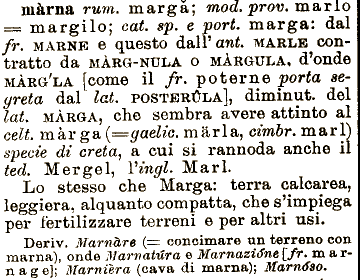 màrna rum. margă; mod. prov. marlo
= margilo; cat. sp. e port. marga: dal
fr. MARNE e questo dall'ant. MARLE con-
tratto da MÀRG-NULA o MÀRGULA, d'onde
MÀRG'LA [come il fr. poterne porta se-
greta dal lat. POSTERÛLA], diminut. del
lat. MÀRGA, che sembra avere attinto al
celt. màrga (=gaelic. märla, cimbr. marl)
specie di creta, a cui si rannoda anche il
ted. Mergel, l'ingl. Marl.
Lo stesso che Marga: terra calcarea,
leggiera, alquanto compatta, che s'impiega
per fertilizzare terreni e per altri usi.
Deriv. Marnàre (= concimare un terreno con
marna), onde Marnatúra e Marnazióne [fr. mar-
nage]; Marnièra (cava di marna); Marnóso.